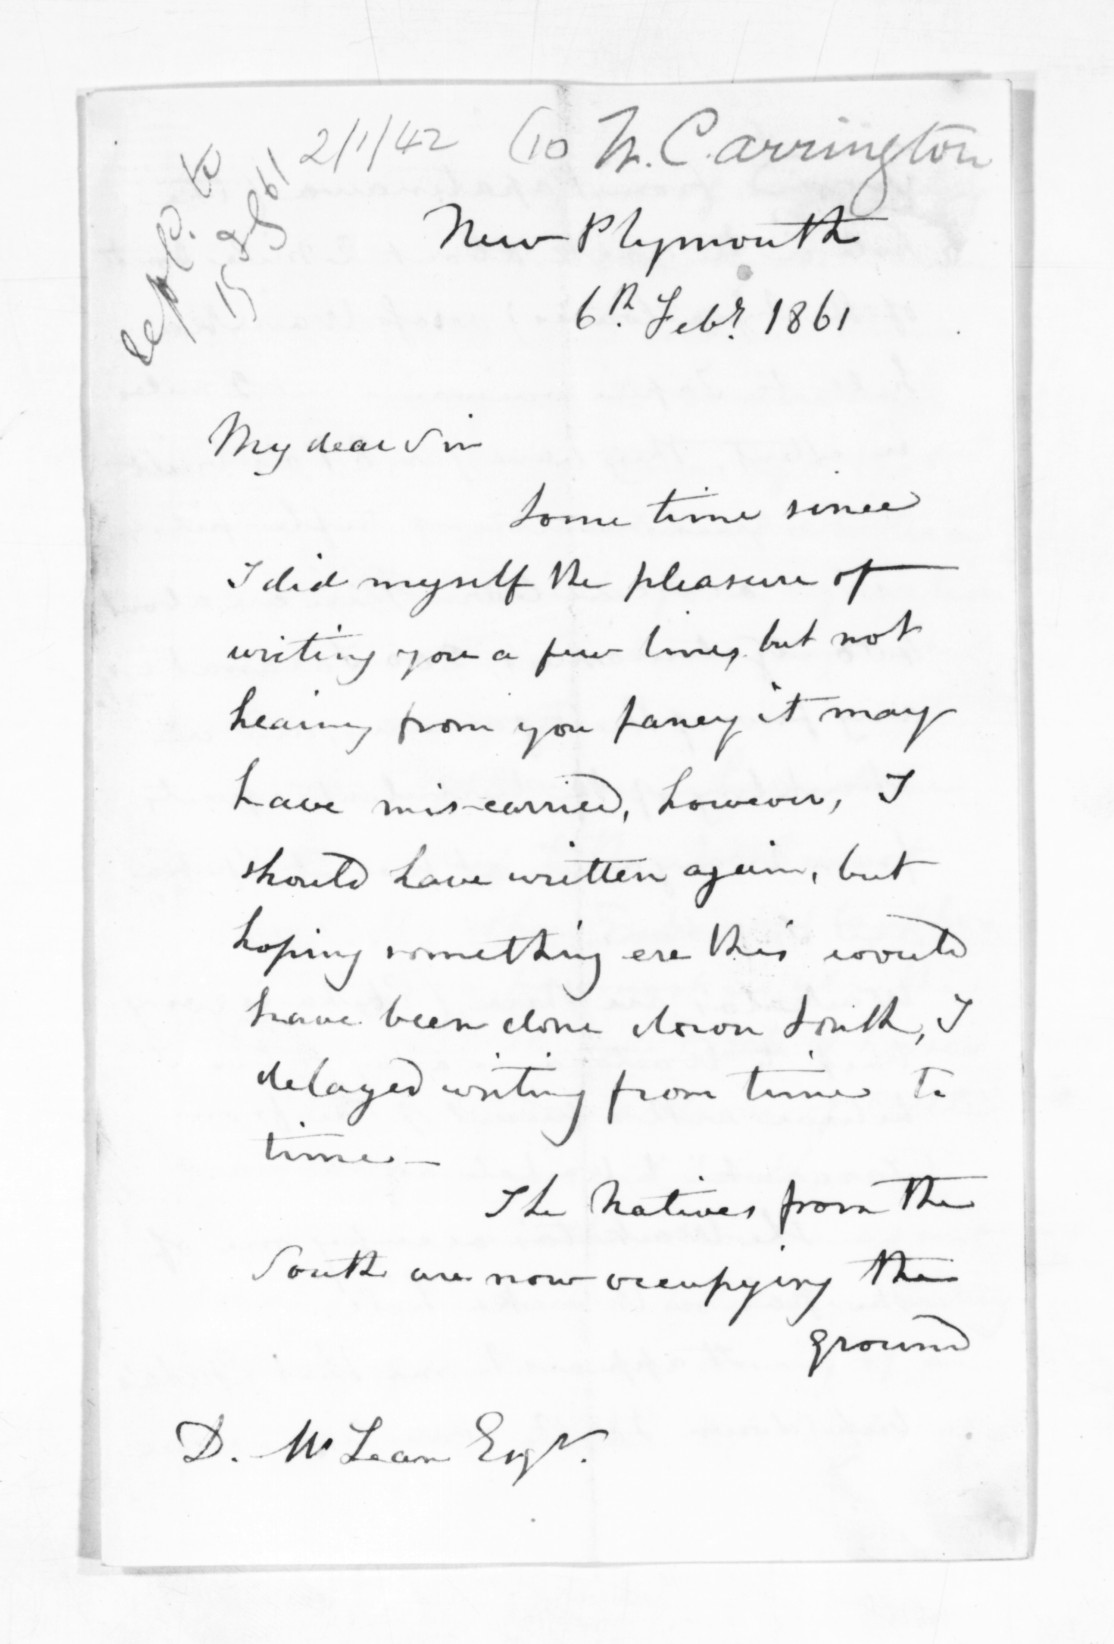 2/1/42 (10 W. Carrington
New Plymouth
6th. Feby. 1861
My dear Sir
Some time since
I did myself the pleasure of
writing you a few lines, but not
hearing from you fancy it may
have mis-carried, however, I
should have written again, but
hoping something ere this would
have been done down South, I
delayed writing from time to
time—
The Natives from the
South are now occupying the
ground
D. McLean Esqr.